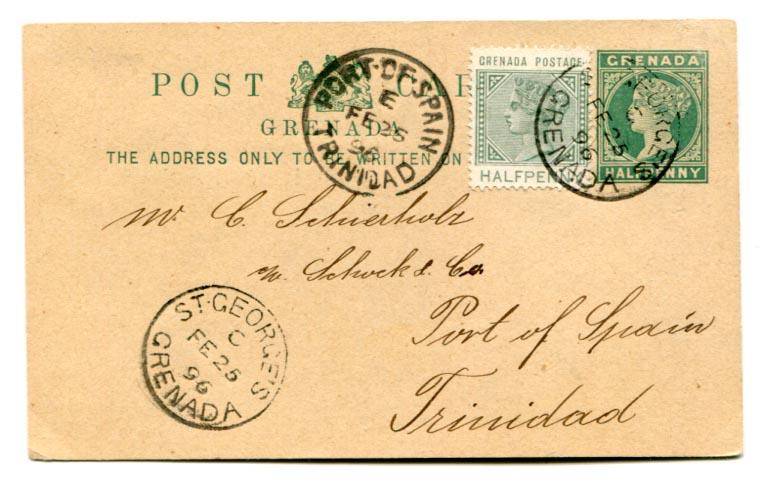 POST CARD
GRENADA
THE ADDRESS ONLY TO BE WRITTEN ON
PORT-OF-SPAIN
E
FE 25
96
TRINIDAD
GRENADA POSTAGE
HALFPENNY
GRENADA
HALFPENNY
ST. GEORGE'S
C
FE 25
96
GRENADA
Mr. C. Schierholz
Schock & Co
Port of Spain
Trinidad
ST. GEORGE'S
C
FE 25
96
GRENADA